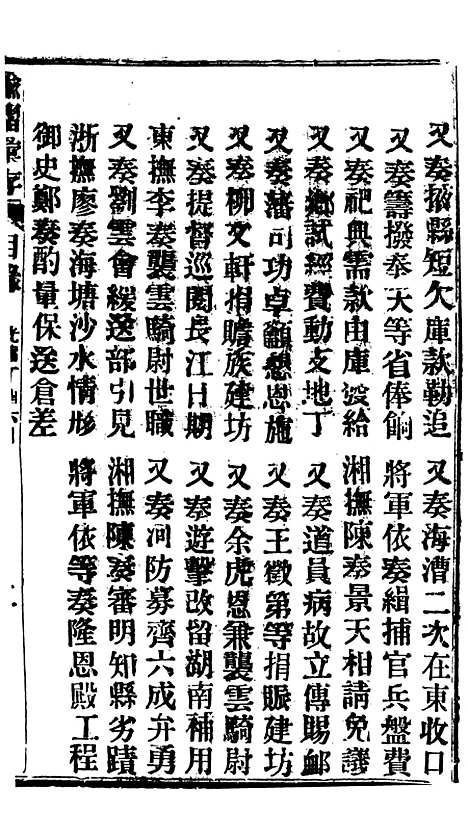 又奏掖縣短欠庫款勒追
又奏海漕二次在東收口
又奏籌撥奉天等省俸餉
將軍依奏緝捕官兵盤費
又奏祀典需款由庫發給
湘撫陳奏景天相請免議
又奏鄉試經費動支地丁
又奏道員病故立傳賜䘏
又奏藩司功卓籲懇恩施
又奏王徵第等捐賑建坊
又奏柳文軒捐贍族建坊
又奏余虎恩兼襲雲騎尉
又奏提督巡閱長江日期
又奏遊擊改留湖南補用
東撫李奏襲雲騎尉世職
又奏河防募齊六成弁勇
又奏劉雲會緩送部引見
湘撫陳奏審明知縣劣蹟
浙撫廖奏海塘沙水情形
將軍依等奏隆恩殿工程
御史鄭奏酌量保送倉差
諭摺彙存 目錄